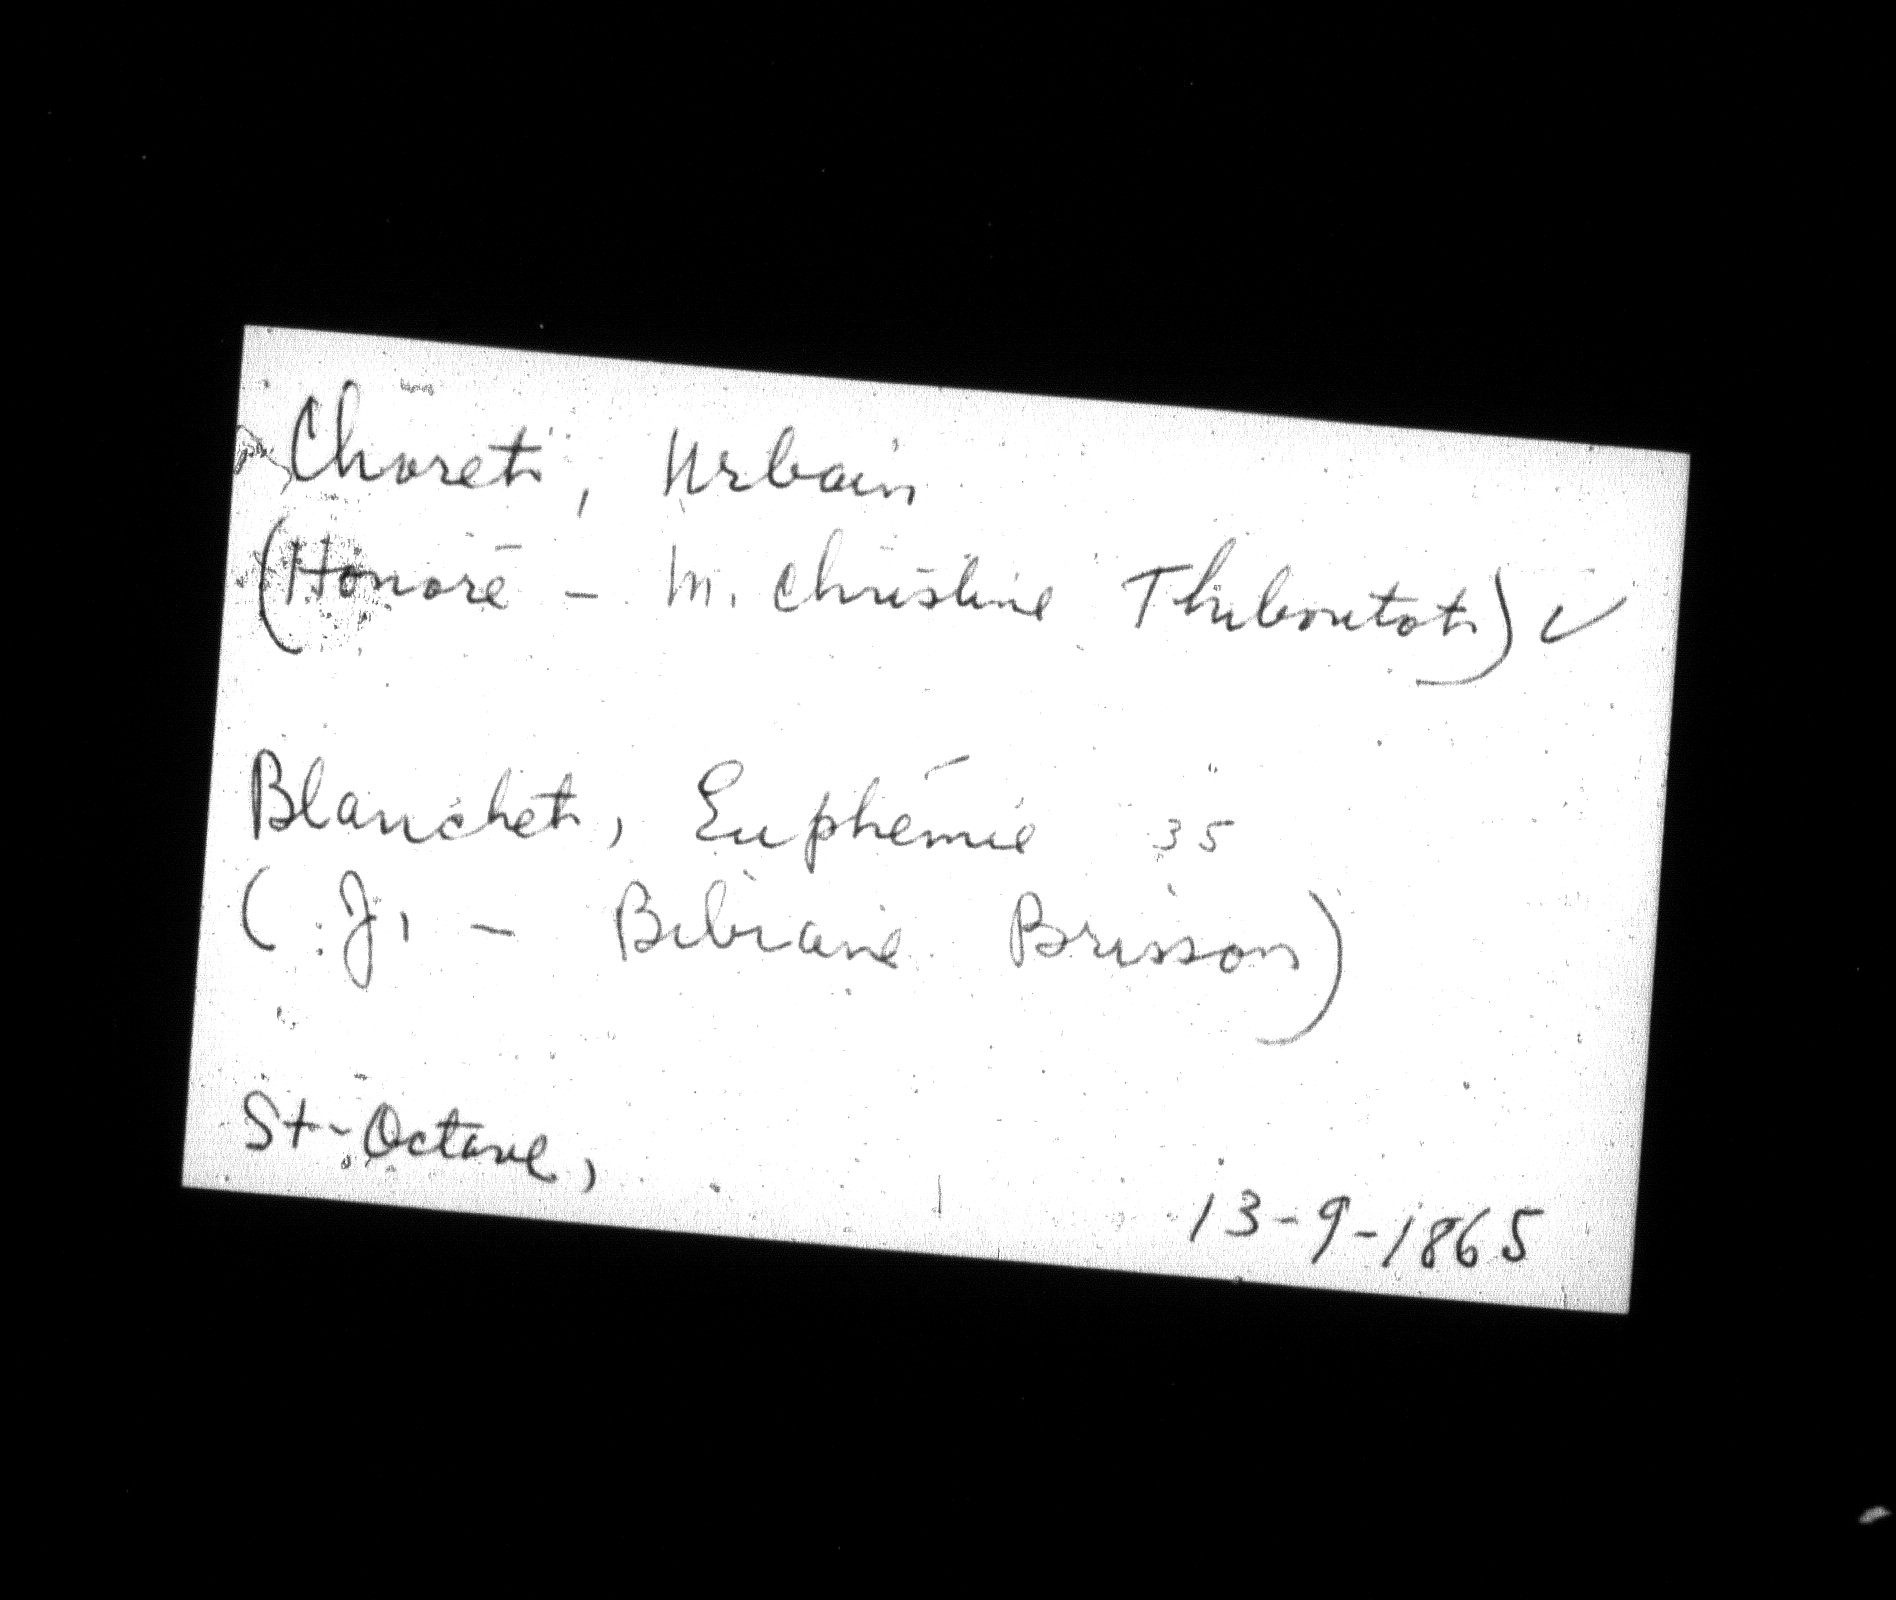 Choret, Urbain
(Honoré - M. Christine Thiboutot) ✓
Blanchet, Euphémie 35
(J. - Bibiane Brisson)
St-Octave,
13-9-1865